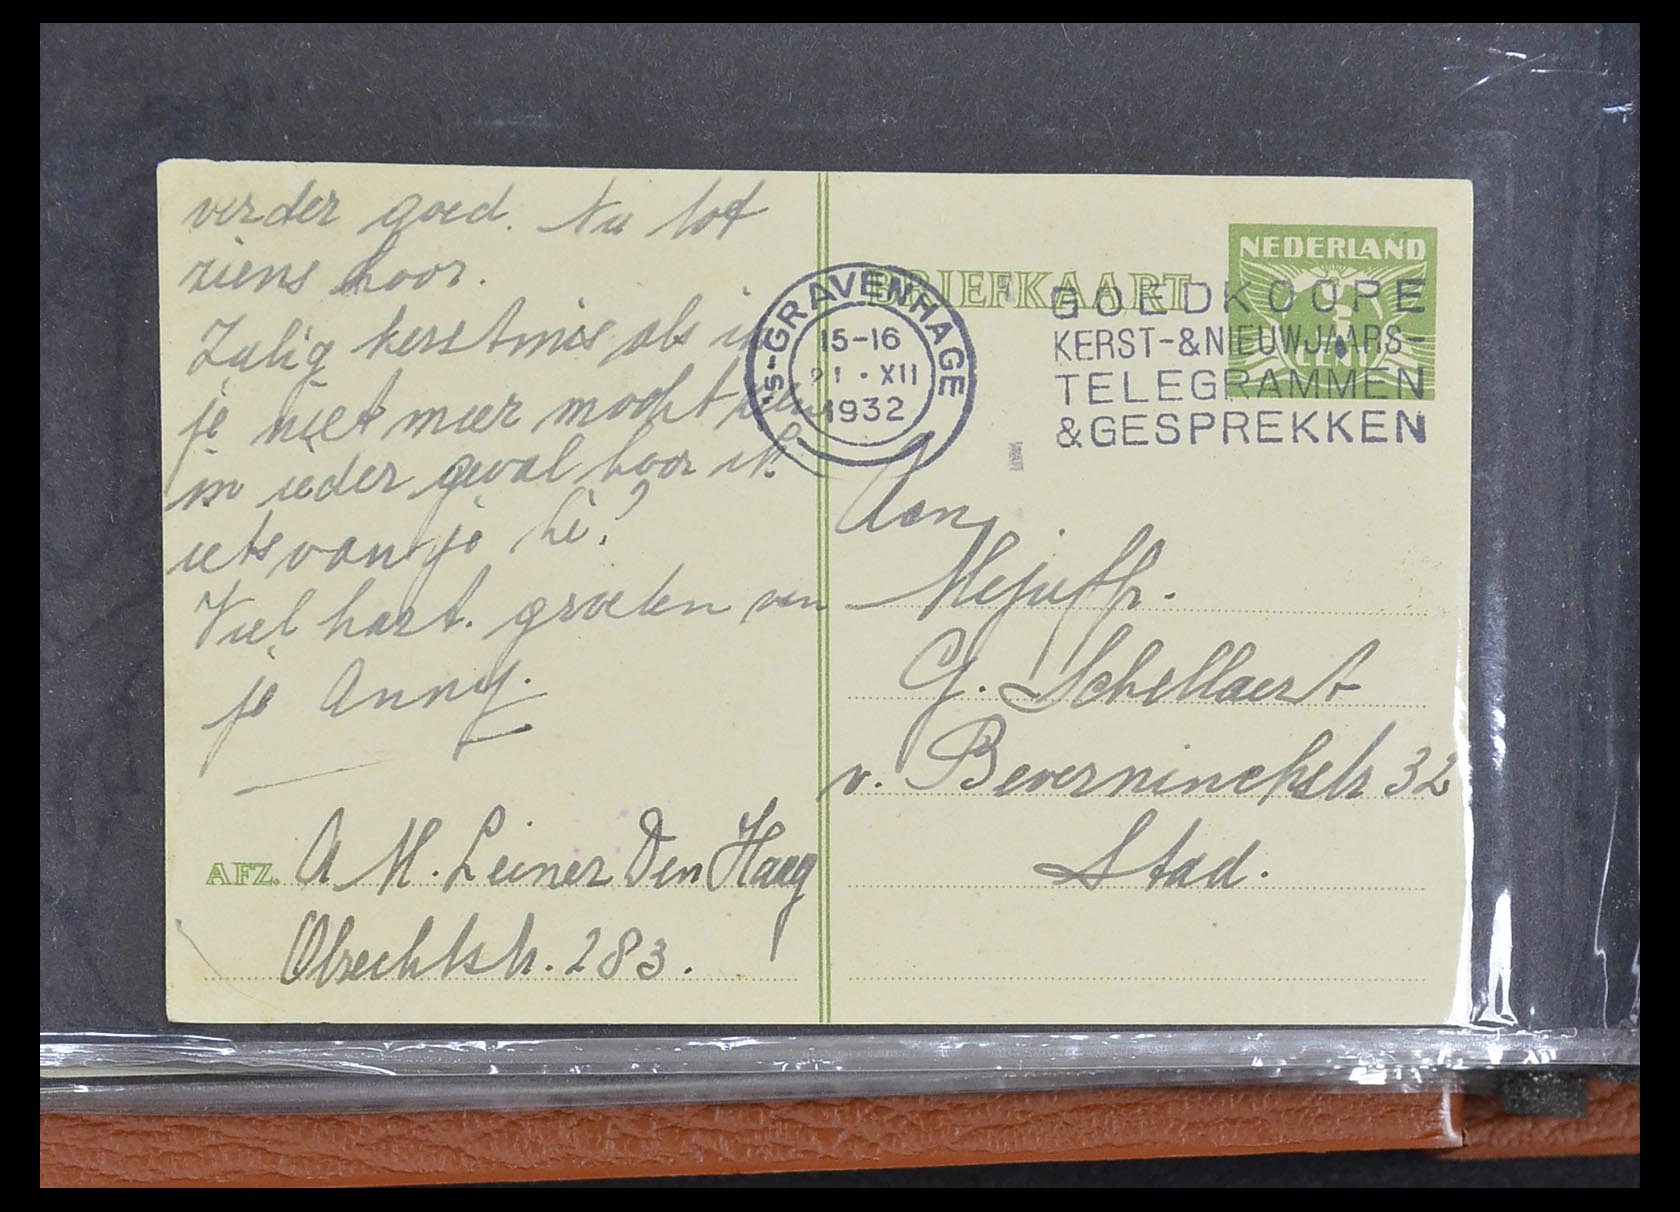 verder goed. Nu tot
ziens hoor.
Zalig kerstmis als ik
je niet meer mocht
in ieder geval hoor ik
iets van je hè?
Veel hart. groeten van
je Anny.
AFZ. A M. Leiner Den Haag
Obrechtstr. 283.
BRIEFKAART
NEDERLAND
'S-GRAVENHAGE
15-16
21 · XII
1932
GOEDKOOPE
KERST-& NIEUWJAARS-
TELEGRAMMEN
& GESPREKKEN
Aan
Mejuffr.
G. Schellaert
v. Beverninckstr 32
Stad.